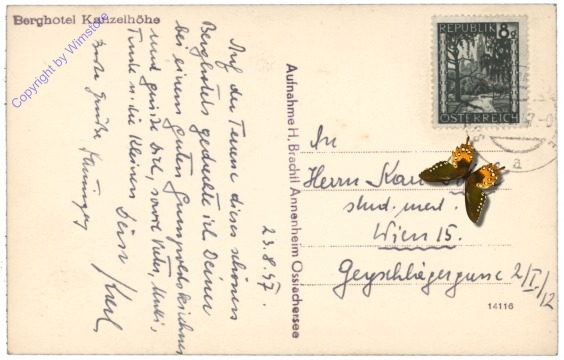 Berghotel Kanzelhöhe
Copyright by Wimstore
Auf der Terrasse dieses schönen
Berghotels gedachte ich Deiner
bei einem guten Gumpoldskirchner
und grüsse Dich, sowie Vater, Mutti,
Tante u. die Kleinen Dein Karl
Beste Grüße
23.8.47.
Aufnahme H. Brachtl Annenheim Ossiachersee
REPUBLIK 8g
ÖSTERREICH
An
Herrn
stud. med.
Wien 15.
Geyschlägergasse 2/I/12
14116